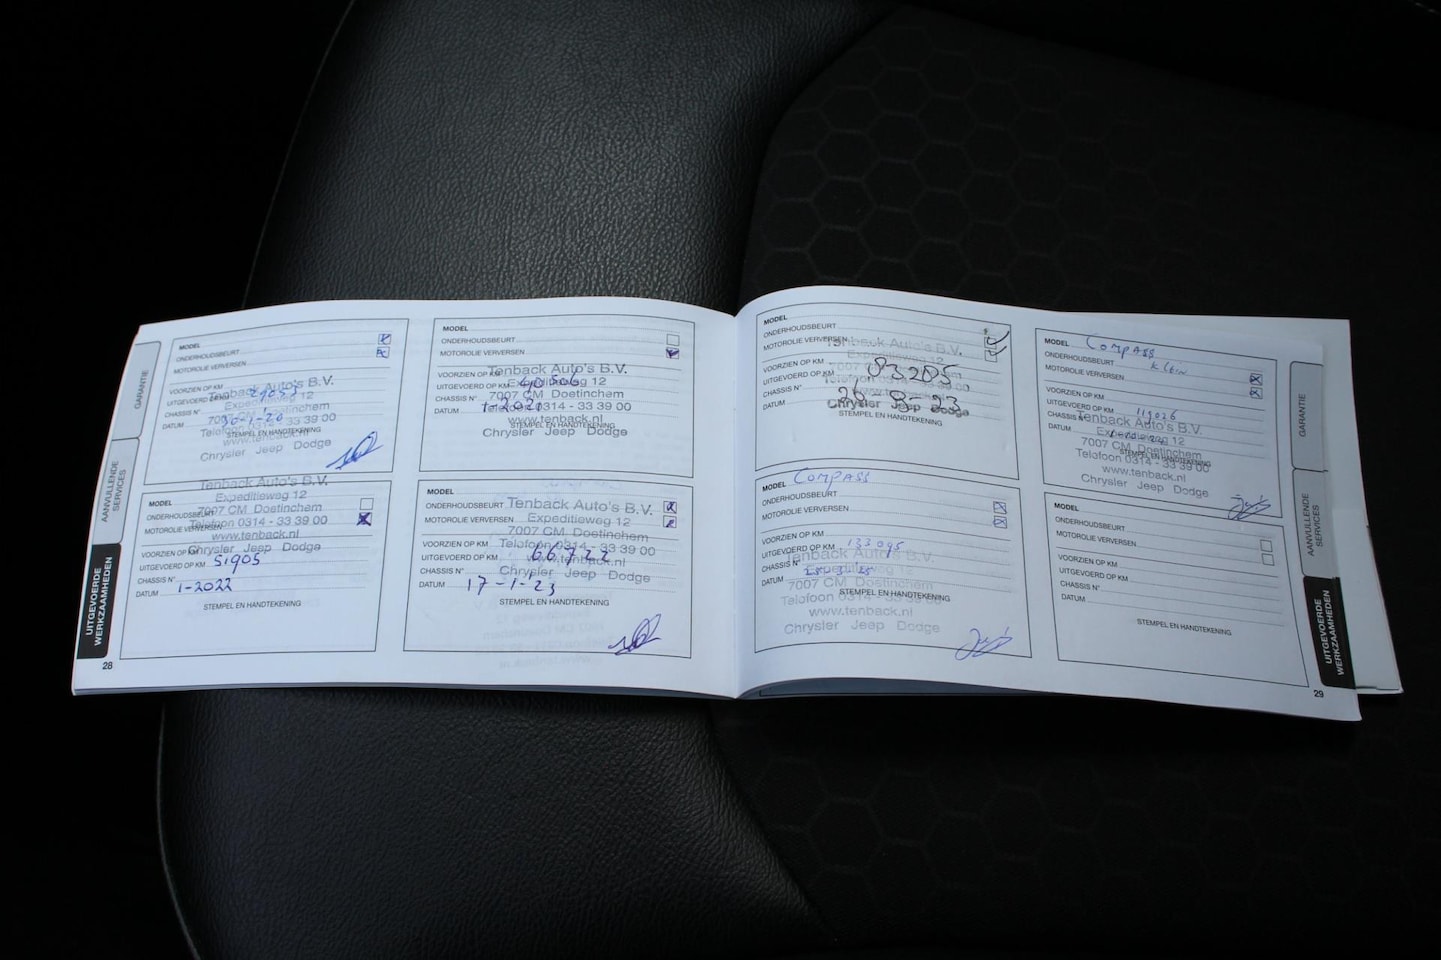 GARANTIE
AANVULLENDE
SERVICES
UITGEVOERDE
WERKZAAMHEDEN
28
MODEL
ONDERHOUDSBEURT
MOTOROLIE VERVERSEN
VOORZIEN OP KM
UITGEVOERD OP KM
CHASSIS N°
DATUM
STEMPEL EN HANDTEKENING
Tenback Auto's B.V.
Expeditieweg 12
7007 CM Doetinchem
Telefoon 0314 - 33 39 00
www.tenback.nl
Chrysler Jeep Dodge
MODEL
ONDERHOUDSBEURT
MOTOROLIE VERVERSEN
VOORZIEN OP KM
UITGEVOERD OP KM 40506
CHASSIS N°
DATUM 1-2021
STEMPEL EN HANDTEKENING
Tenback Auto's B.V.
Expeditieweg 12
7007 CM Doetinchem
Telefoon 0314 - 33 39 00
www.tenback.nl
Chrysler Jeep Dodge
MODEL
ONDERHOUDSBEURT
MOTOROLIE VERVERSEN
VOORZIEN OP KM
UITGEVOERD OP KM 51905
CHASSIS N°
DATUM 1-2022
STEMPEL EN HANDTEKENING
Tenback Auto's B.V.
Expeditieweg 12
7007 CM Doetinchem
Telefoon 0314 - 33 39 00
www.tenback.nl
Chrysler Jeep Dodge
MODEL
ONDERHOUDSBEURT
MOTOROLIE VERVERSEN
VOORZIEN OP KM
UITGEVOERD OP KM 66722
CHASSIS N°
DATUM 17-1-23
STEMPEL EN HANDTEKENING
Tenback Auto's B.V.
Expeditieweg 12
7007 CM Doetinchem
Telefoon 0314 - 33 39 00
www.tenback.nl
Chrysler Jeep Dodge
MODEL
ONDERHOUDSBEURT
MOTOROLIE VERVERSEN
VOORZIEN OP KM
UITGEVOERD OP KM 93205
CHASSIS N°
DATUM 20-8-23
STEMPEL EN HANDTEKENING
Tenback Auto's B.V.
Expeditieweg 12
Chrysler Jeep Dodge
MODEL Compass
ONDERHOUDSBEURT klein
MOTOROLIE VERVERSEN
VOORZIEN OP KM
UITGEVOERD OP KM 119026
CHASSIS N°
DATUM
STEMPEL EN HANDTEKENING
Tenback Auto's B.V.
Expeditieweg 12
7007 CM Doetinchem
Telefoon 0314 - 33 39 00
www.tenback.nl
Chrysler Jeep Dodge
MODEL Compass
ONDERHOUDSBEURT
MOTOROLIE VERVERSEN
VOORZIEN OP KM
UITGEVOERD OP KM 133095
CHASSIS N°
DATUM
Tenback Auto's B.V.
Expeditieweg 12
7007 CM Doetinchem
Telefoon 0314 - 33 39 00
www.tenback.nl
Chrysler Jeep Dodge
MODEL
ONDERHOUDSBEURT
MOTOROLIE VERVERSEN
VOORZIEN OP KM
UITGEVOERD OP KM
CHASSIS N°
DATUM
STEMPEL EN HANDTEKENING
GARANTIE
AANVULLENDE
SERVICES
UITGEVOERDE
WERKZAAMHEDEN
29